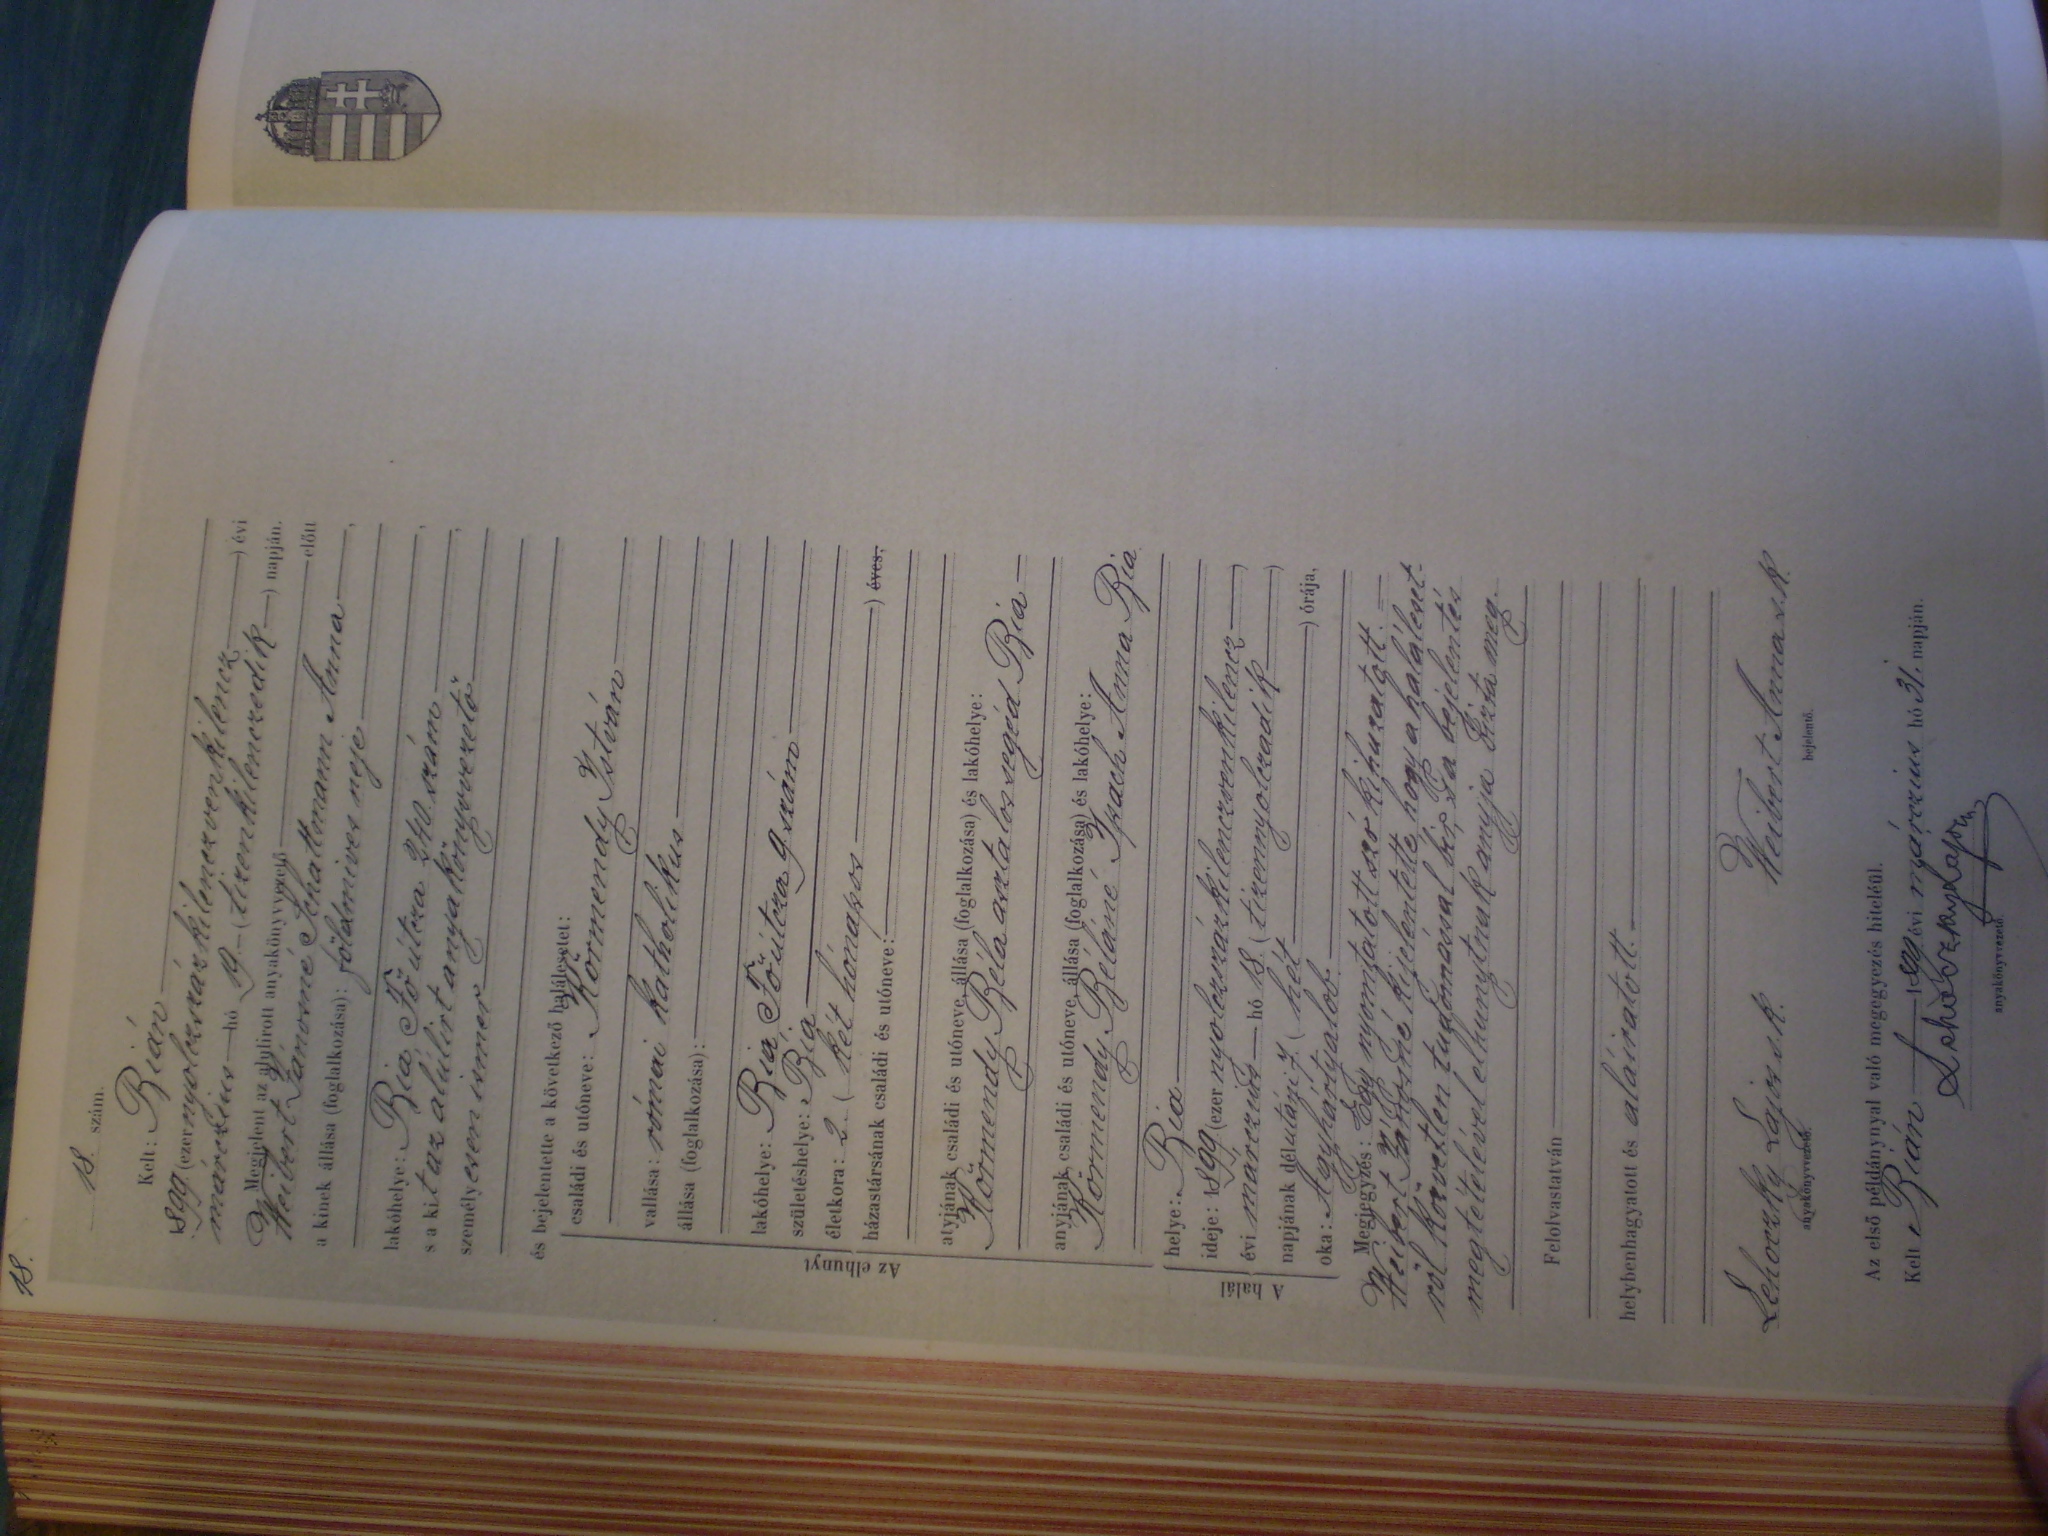 18.
18. szám.
Kelt: Bián
1899. (ezernyolczszázkilenczvenkilencz) évi
márczius hó 19. (tizenkilenczedik) napján.
Megjelent az alulirott anyakönyvvezető előtt
Heibert Jánosné Anna
a kinek állása (foglalkozása): földmíves neje,
lakóhelye: Bia Fő útcza 240. szám,
s a kit az alúlírt anyakönyvvezető
személyesen ismer,
és bejelentette a következő halálesetet:
családi és utóneve: Körmendy István
vallása: római katholikus
állása (foglalkozása):
lakóhelye: Bia Fő útcza 9. szám
születéshelye: Bia
életkora: 2. (két hónapos) éves,
házastársának családi és utóneve:
atyjának családi és utóneve, állása (foglalkozása) és lakóhelye:
Körmendy Béla asztalos segéd Bia
anyjának családi és utóneve, állása (foglalkozása) és lakóhelye:
Körmendy Béláné Anna Bia
Az elhunyt
helye: Bia
ideje: 1899 (ezernyolczszázkilenczvenkilencz)
évi márczius hó 18. (tizennyolczadik)
napjának délutáni 7. (hét) órája,
oka: Agyhártyalob.
A halál
Megjegyzés: Egy nyomtatott szó kihuzatott.
Heibert Jánosné kijelentette, hogy a haláleset-
ről közvetlen tudomással bír, s a bejelentés
megtételével elhunytnak anyja bízta meg.
Felolvastatván
helybenhagyatott és aláiratott.
Lehoczky Lajos s. k. Heibert Anna s. k.
anyakönyvvezető. bejelentő.
Az első példánynyal való megegyezés hiteléül.
Kelt Bián 1899. évi márczius hó 31. napján.
Lehoczky Lajos
anyakönyvvezető.